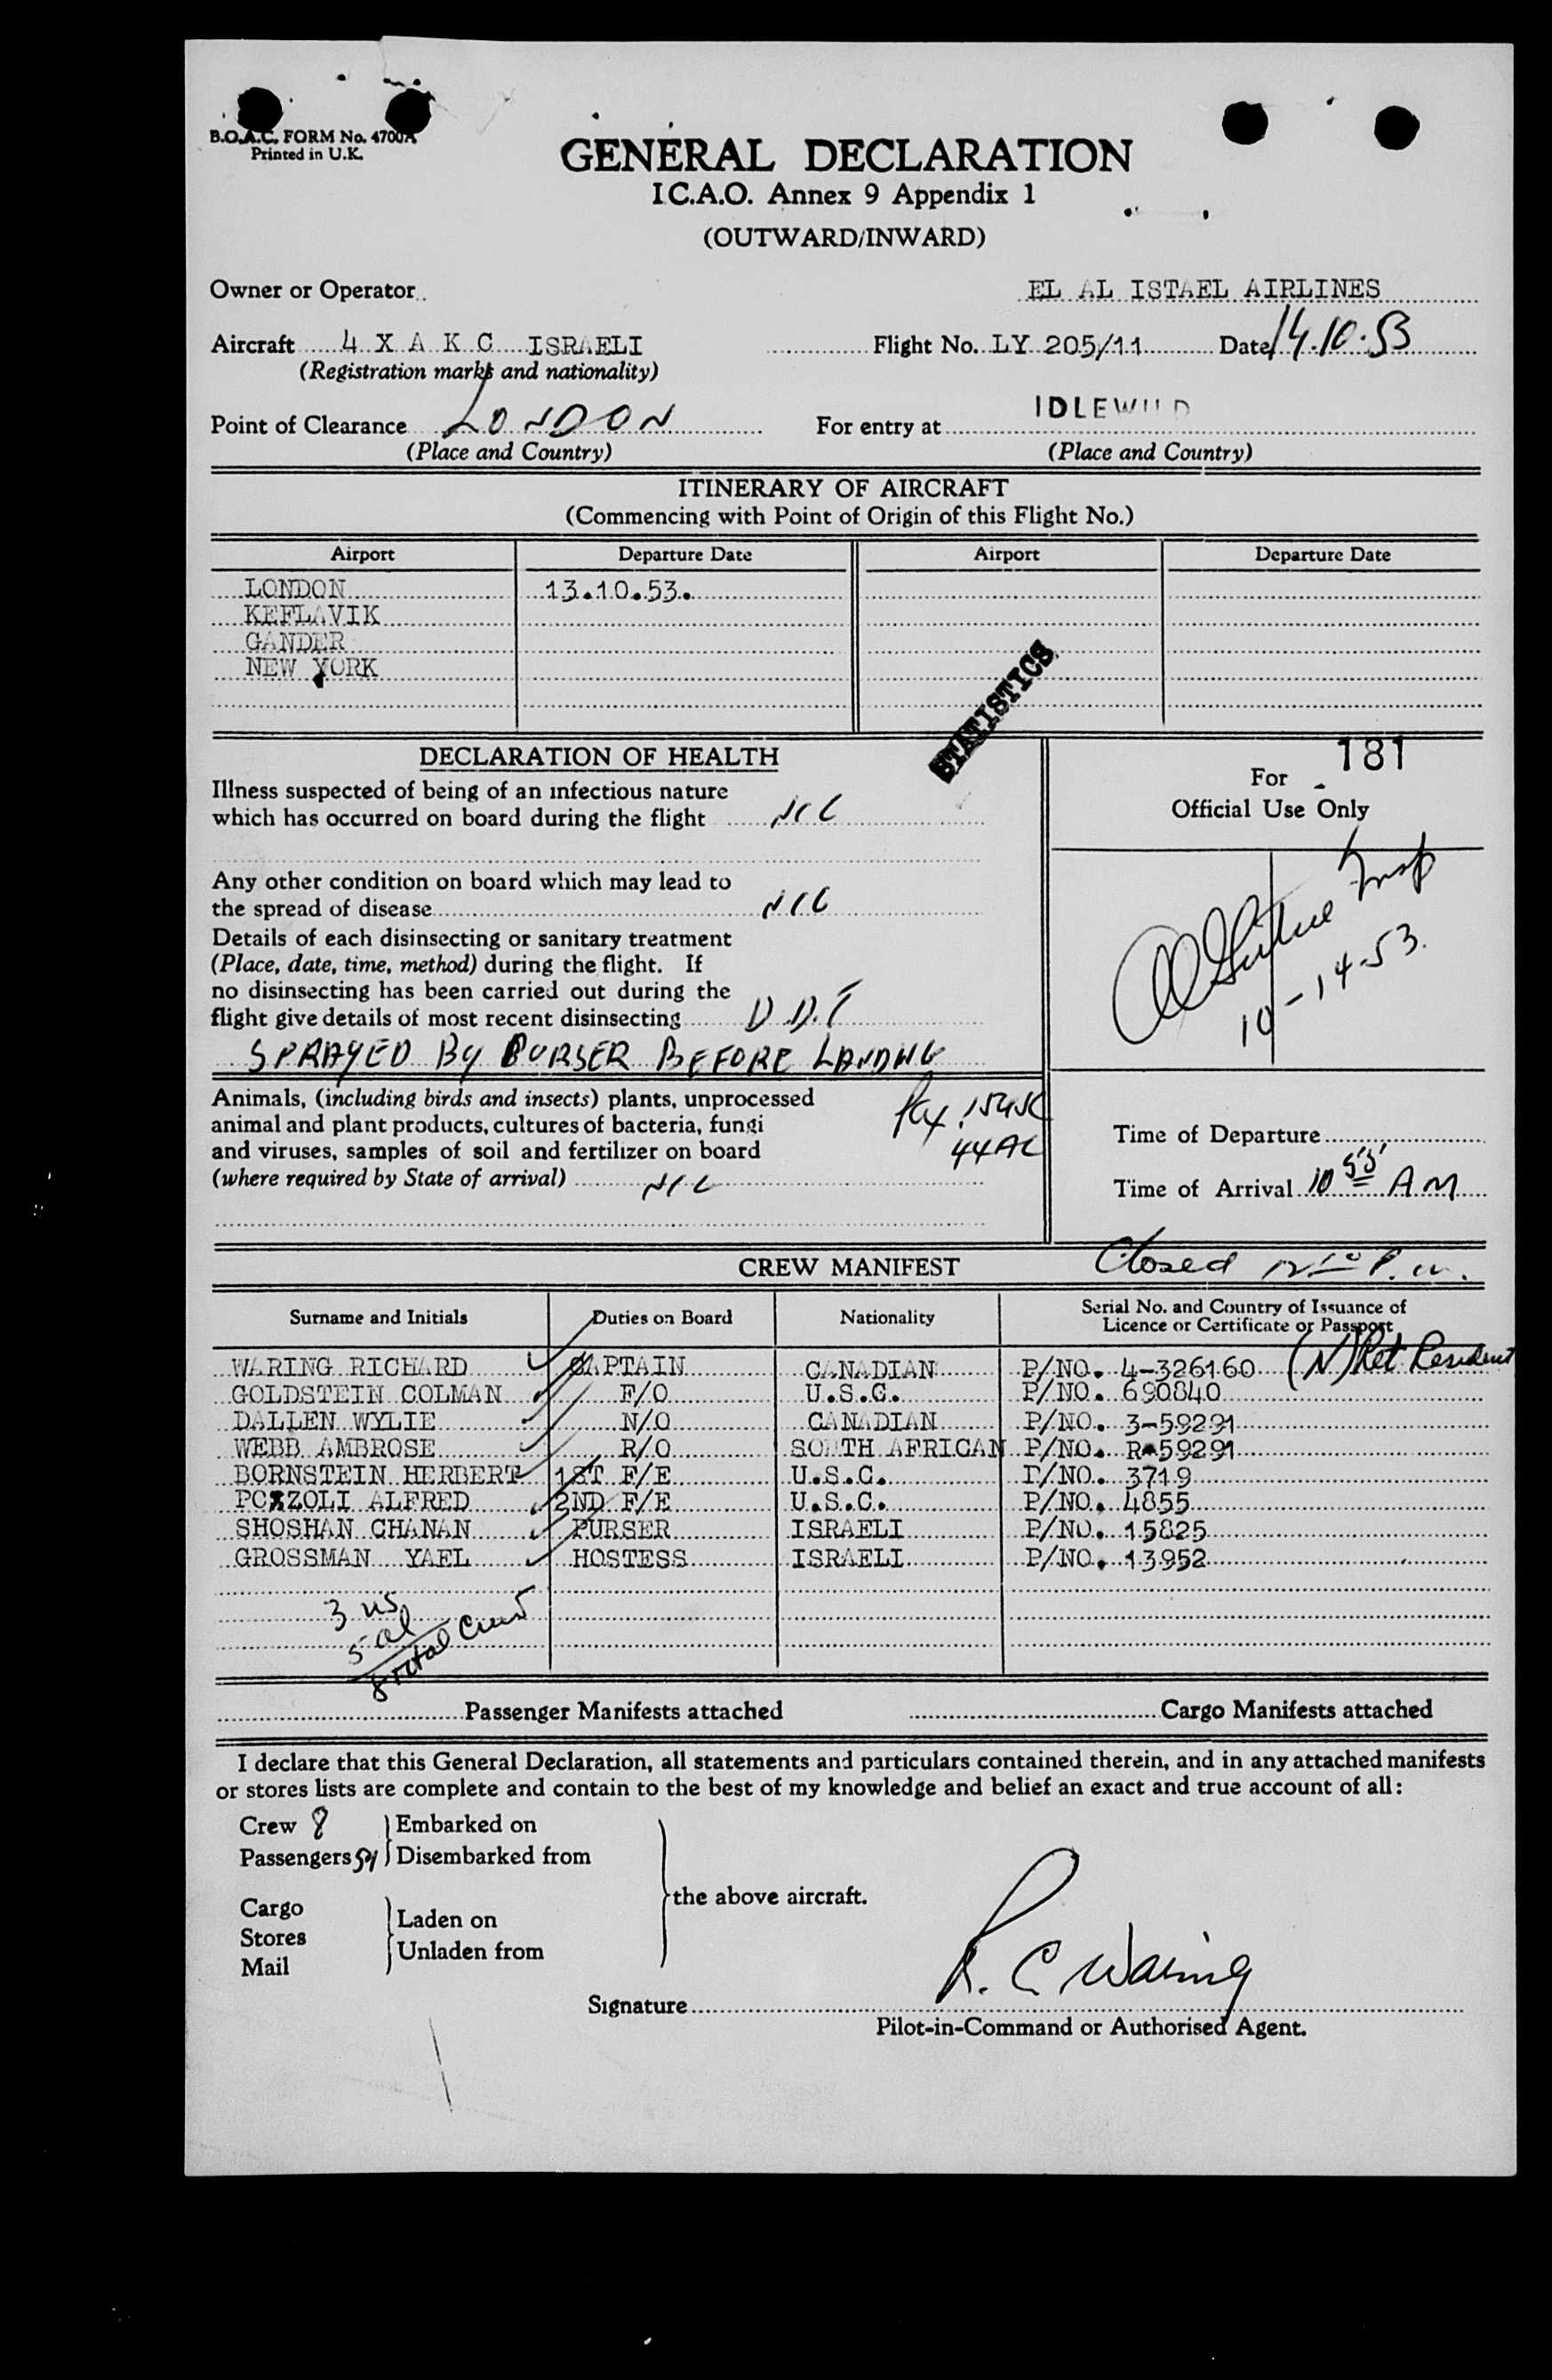 B.O.A.C. FORM No. 4700A
Printed in U.K.
GENERAL DECLARATION
I C.A.O. Annex 9 Appendix 1
(OUTWARD/INWARD)
Owner or Operator EL AL ISTAEL AIRLINES
Aircraft 4 X A K C ISRAELI Flight No. LY 205/11 Date 14.10.53
(Registration marks and nationality)
Point of Clearance LONDON For entry at IDLEWILD
(Place and Country) (Place and Country)
ITINERARY OF AIRCRAFT
(Commencing with Point of Origin of this Flight No.)
Airport Departure Date Airport Departure Date
LONDON 13.10.53.
KEFLAVIK
GANDER
NEW YORK
STATISTICS
DECLARATION OF HEALTH
181
For
Official Use Only
Illness suspected of being of an infectious nature
which has occurred on board during the flight NIL
Any other condition on board which may lead to
the spread of disease NIL
Details of each disinsecting or sanitary treatment
(Place, date, time, method) during the flight. If
no disinsecting has been carried out during the
flight give details of most recent disinsecting D.D.T
SPRAYED BY PURSER BEFORE LANDING
Insp
10-14-53.
Animals, (including birds and insects) plants, unprocessed
animal and plant products, cultures of bacteria, fungi
and viruses, samples of soil and fertilizer on board
(where required by State of arrival) NIL
44 AL
Time of Departure
Time of Arrival 10 55 AM
CREW MANIFEST
Closed 12 10 P.m.
Surname and Initials Duties on Board Nationality Serial No. and Country of Issuance of
Licence or Certificate or Passport
WARING RICHARD CAPTAIN CANADIAN P/NO. 4-326160 (N) Ret Resident
GOLDSTEIN COLMAN F/O U.S.C. P/NO. 690840
DALLEN WYLIE N/O CANADIAN P/NO. 3-59291
WEBB AMBROSE R/O SOUTH AFRICAN P/NO. R-59291
BORNSTEIN HERBERT 1ST F/E U.S.C. P/NO. 3719
POZZOLI ALFRED 2ND F/E U.S.C. P/NO. 4855
SHOSHAN CHANAN PURSER ISRAELI P/NO. 15825
GROSSMAN YAEL HOSTESS ISRAELI P/NO. 13952
3 us
5 al
8 total crew
Passenger Manifests attached Cargo Manifests attached
I declare that this General Declaration, all statements and particulars contained therein, and in any attached manifests
or stores lists are complete and contain to the best of my knowledge and belief an exact and true account of all:
Crew 8 Embarked on
Passengers Disembarked from
the above aircraft.
Cargo
Stores
Mail
Laden on
Unladen from
R. C Waring
Signature
Pilot-in-Command or Authorised Agent.